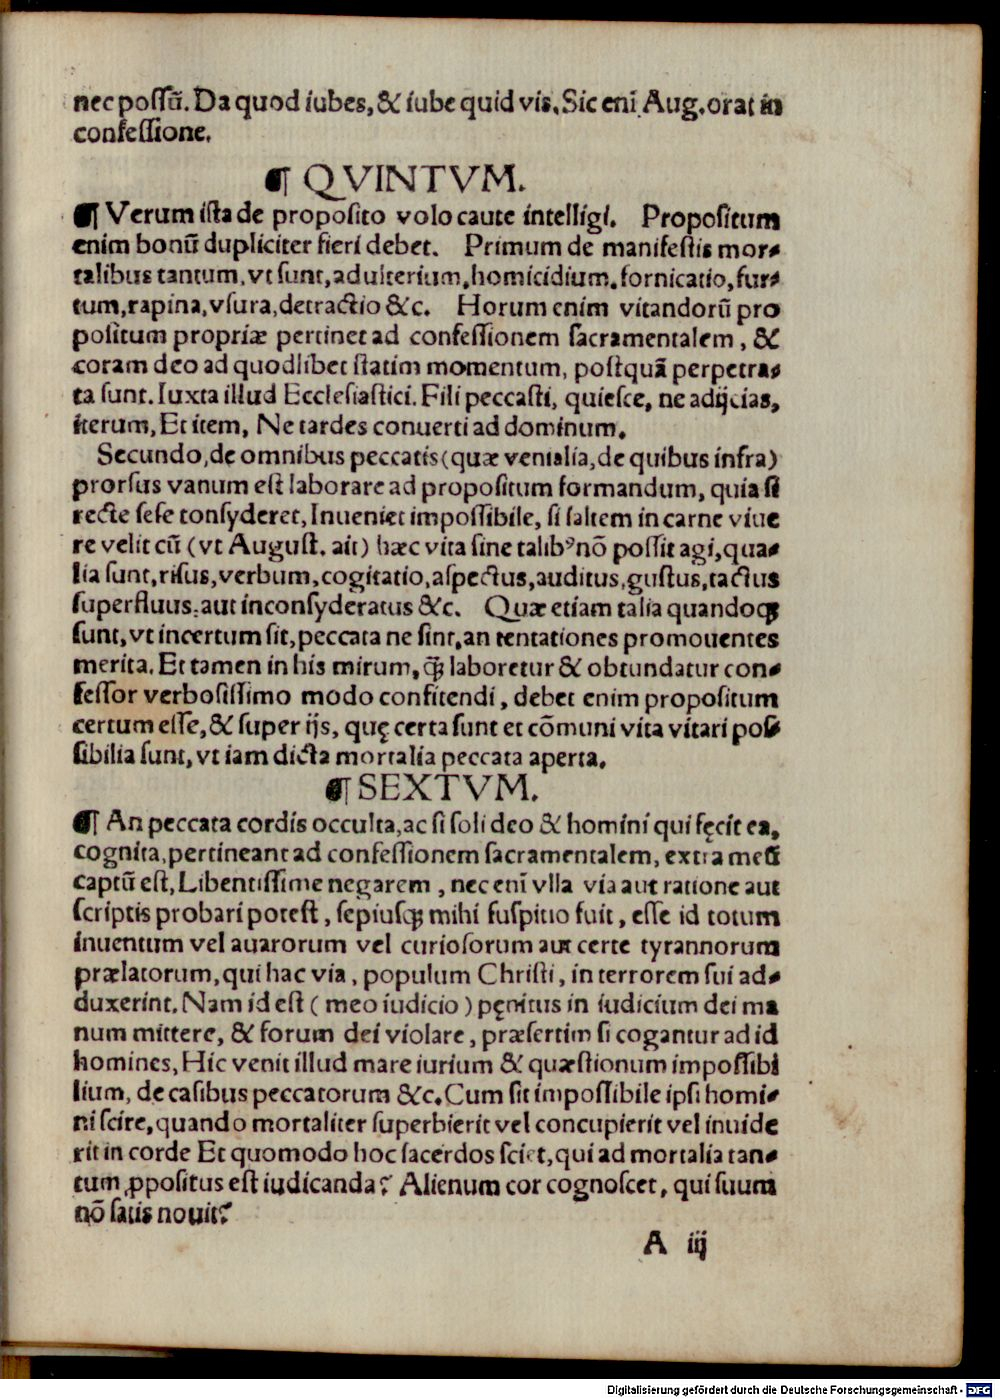 nec possū. Da quod iubes, & iube quid vis. Sic enī Aug. orat in
confessione.
¶ QVINTVM.
¶ Verum ista de proposito volo caute intelligi. Propositum
enim bonū dupliciter fieri debet. Primum de manifestis mor-
talibus tantum, vt sunt, adulterium, homicidium, fornicatio, fur-
tum, rapina, vsura, detractio &c. Horum enim vitandorū pro
positum propriæ pertinet ad confessionem sacramentalem, &
coram deo ad quodlibet statim momentum, postquā perpetra-
ta sunt. Iuxta illud Ecclesiastici. Fili peccasti, quiesce, ne adijcias,
iterum, Et item, Ne tardes conuerti ad dominum.
Secundo, de omnibus peccatis (quæ venialia, de quibus infra)
prorsus vanum est laborare ad propositum formandum, quia si
recte sese consyderet, Inueniet impossibile, si saltem in carne viue
re velit cū (vt August. ait) hæc vita sine talibꝰ nō possit agi, qua-
lia sunt, risus, verbum, cogitatio, aspectus, auditus, gustus, tactus
superfluus, aut inconsyderatus &c. Quæ etiam talia quandoqꝫ
sunt, vt incertum sit, peccata ne sint, an tentationes promouentes
merita. Et tamen in his mirum, qꝫ laboretur & obtundatur con-
fessor verbosissimo modo confitendi, debet enim propositum
certum esse, & super ijs, quę certa sunt et cōmuni vita vitari pos-
sibilia sunt, vt iam dicta mortalia peccata aperta.
¶ SEXTVM.
¶ An peccata cordis occulta, ac si soli deo & homini qui fęcit ea,
cognita, pertineant ad confessionem sacramentalem, extra meū
captū est, Libentissime negarem, nec enī vlla via aut ratione aut
scriptis probari potest, sepiusqꝫ mihi suspitio fuit, esse id totum
inuentum vel auarorum vel curiosorum aut certe tyrannorum
prælatorum, qui hac via, populum Christi, in terrorem sui ad-
duxerint. Nam id est (meo iudicio) pęnitus in iudicium dei ma
num mittere, & forum dei violare, præsertim si cogantur ad id
homines, Hic venit illud mare iurium & quæstionum impossibi
lium, de casibus peccatorum &c. Cum sit impossibile ipsi homi-
ni scire, quando mortaliter superbierit vel concupierit vel inuide
rit in corde Et quomodo hoc sacerdos sciet, qui ad mortalia tan-
tum ꝓpositus est iudicanda? Alienum cor cognoscet, qui suum
nō satis nouit?
A iij
Digitalisierung gefördert durch die Deutsche Forschungsgemeinschaft - DFG